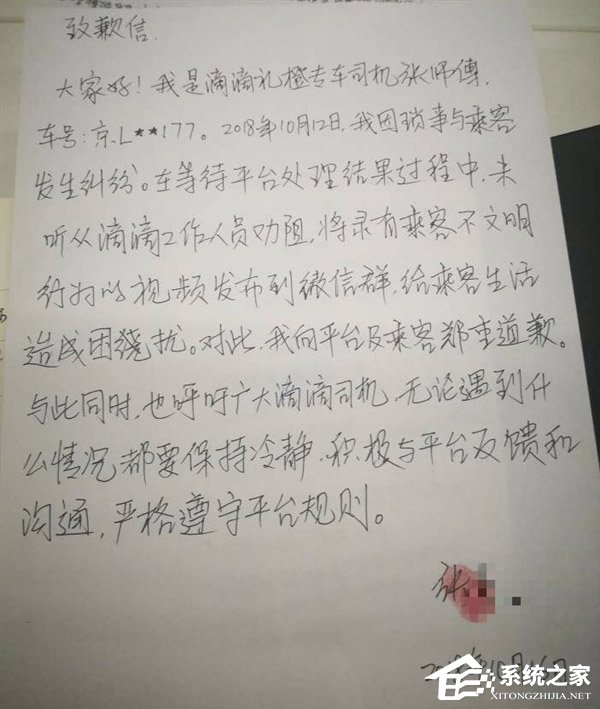 致歉信.
大家好！我是滴滴礼橙专车司机张师傅,
车号:京.L**177。2018年10月12日,我因琐事与乘客
发生纠纷。在等待平台处理结果过程中,未
听从滴滴工作人员劝阻,将录有乘客不文明
行为的视频发布到微信群,给乘客生活
造成困绕扰。对此,我向平台及乘客郑重道歉。
与此同时,也呼吁广大滴滴司机,无论遇到什
么情况都要保持冷静,积极与平台反馈和
沟通,严格遵守平台规则。
张
系统之家
XITONGZHIJIA.NET